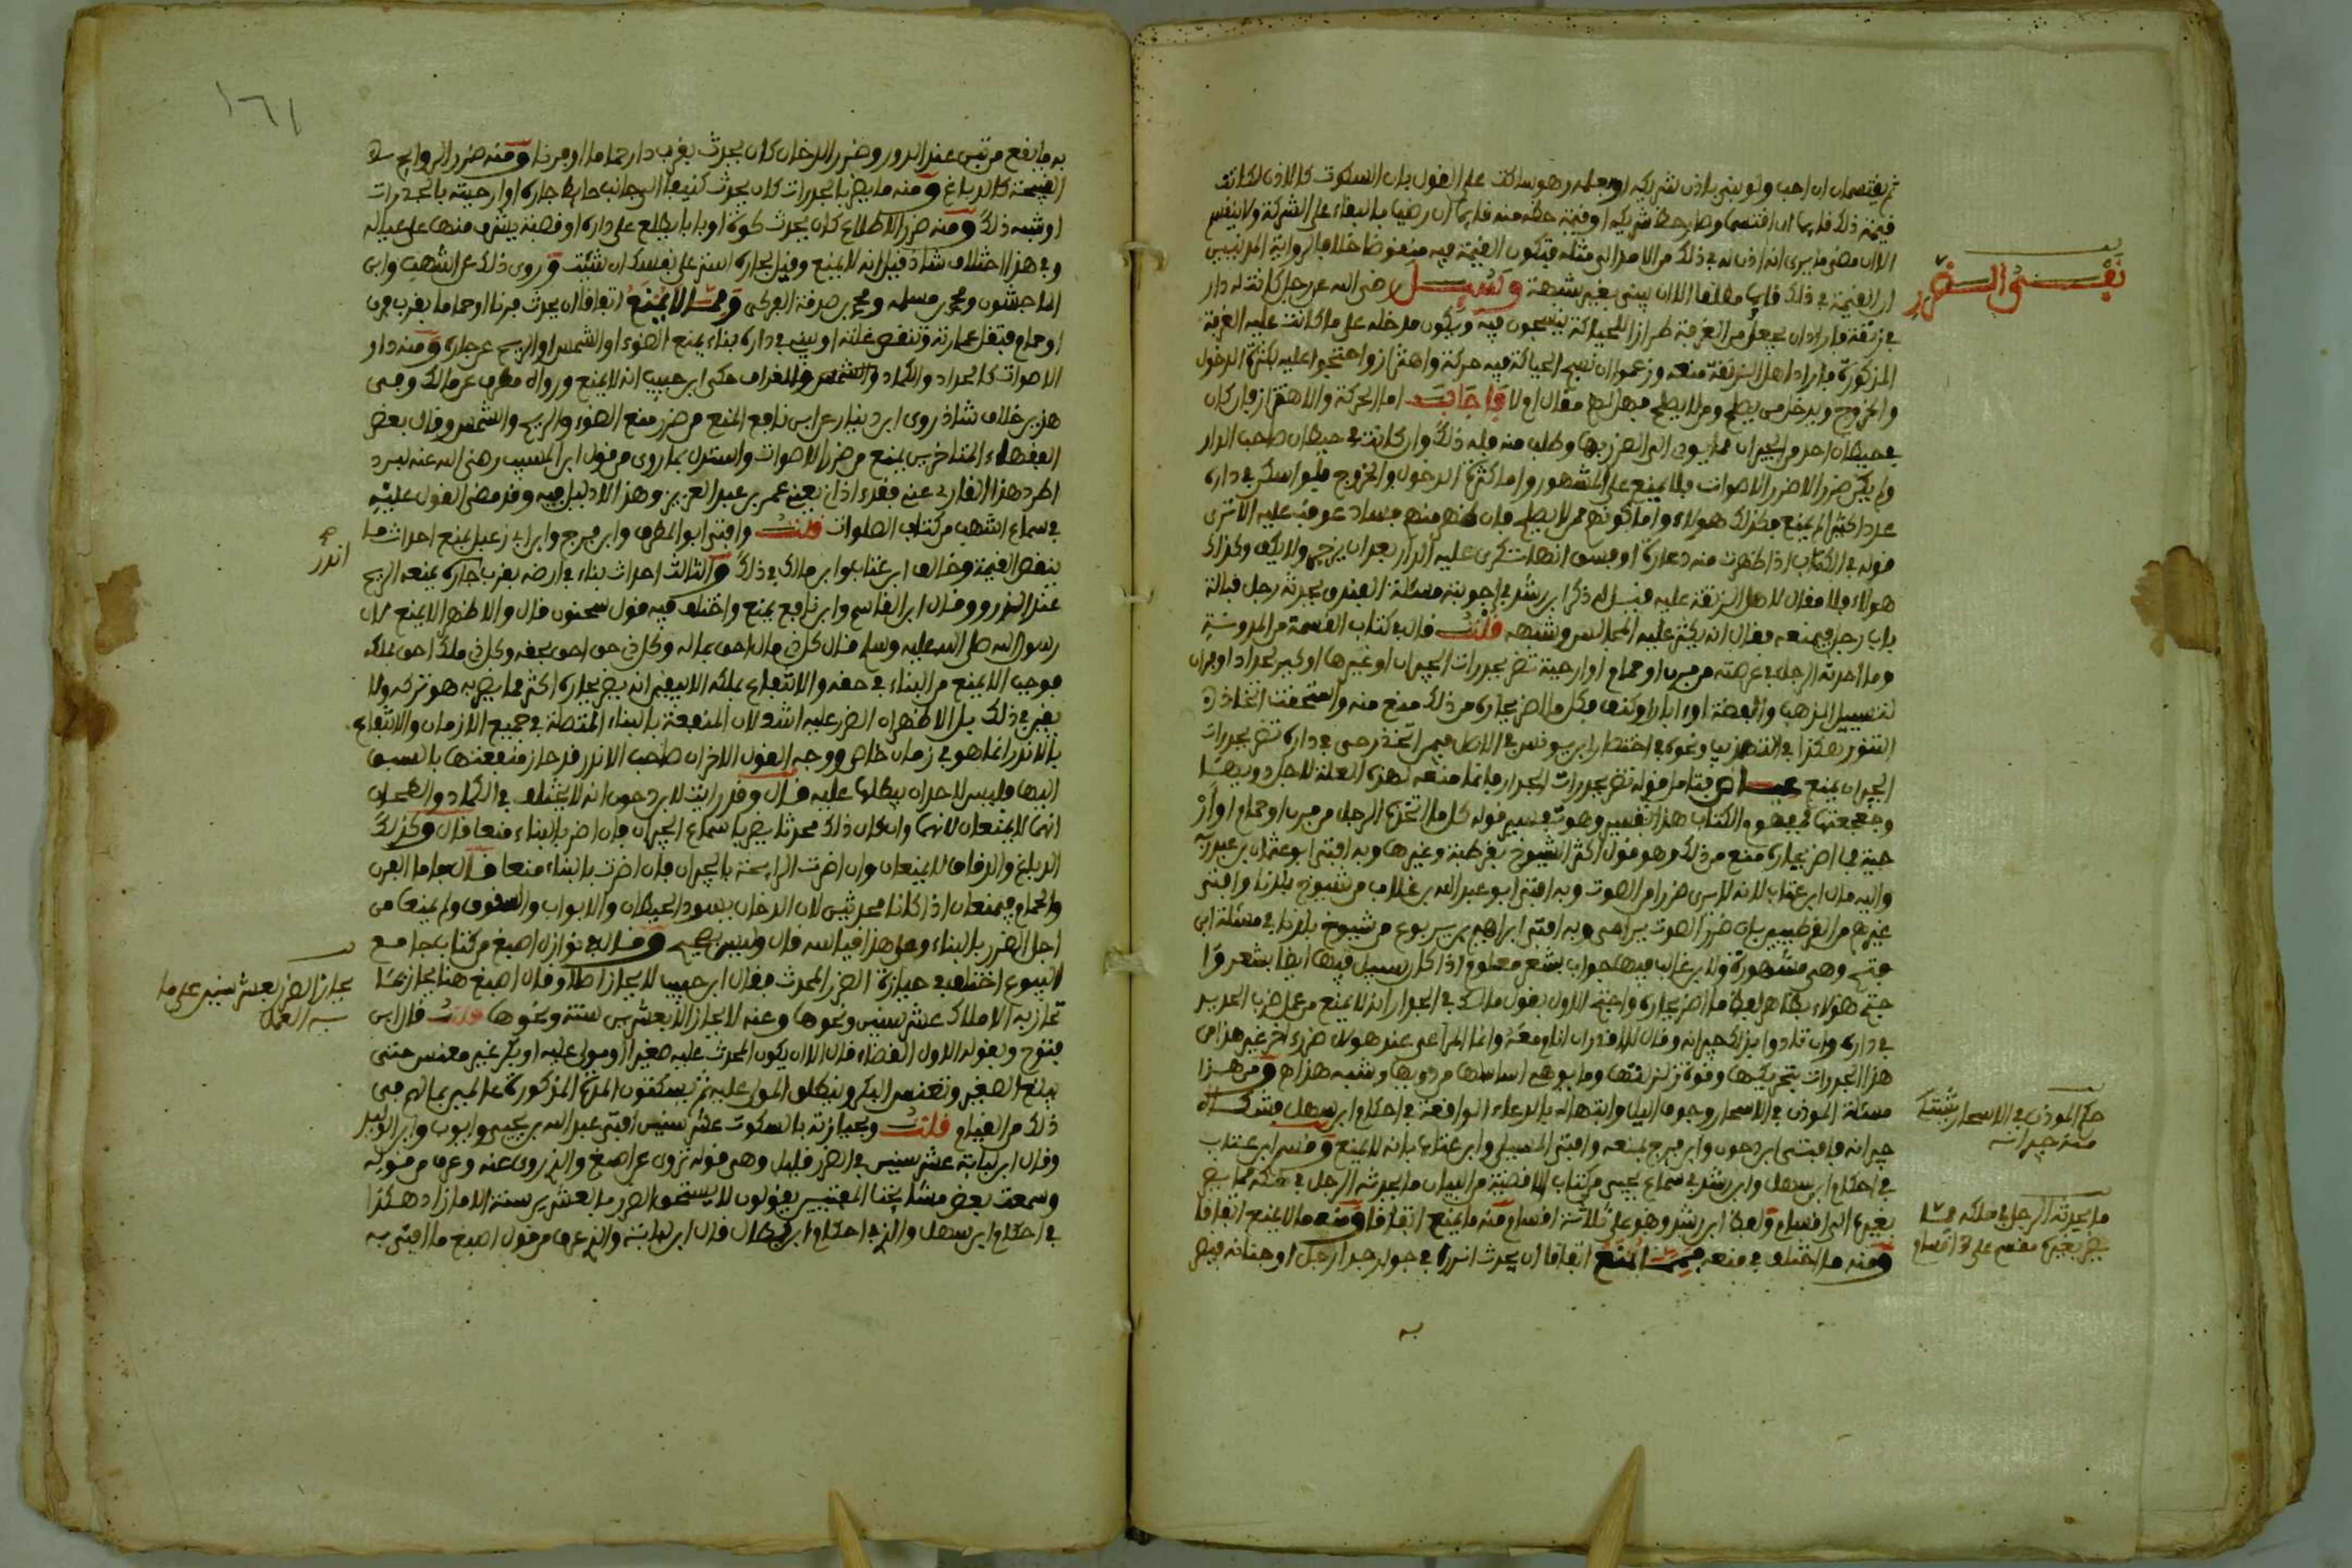 ثم يقتسمان ان احب ولو بنى باذن شريكه او بعلمه وهو ساكت على القول بان السكوت كالاذن لكانت
قيمة ذلك قايما ان اقتسما وصار حظ شريكه او قيمة حظه منه قايما ان رضيا بالبقاء على الشركة ولا ينقص
الا ان مضى ما يرى انه اذن له في ذلك من الامد الى مثله فتكون القيمة فيه منقوضا خلاف الرواية المدنيين
ان القيمة في ذلك قايما مطلقا الا ان يبنى بغير شبهة وسئل رضى الله عنه عن رجل كانت له دار
في زنقة فاراد ان يجعل من الغرفة طرازا للحياكة ينسجون فيه ويكون مدخله على ما كانت عليه الغرفة
المذكورة فاراد اهل الزنقة منعه وزعموا ان نسج الحياكة فيه حركة واهتزاز واحتجوا عليه بكثرة الدخول
والخروج ويدخل من يصلح ومن لا يصلح فهل لهم مقال ام لا فاجاب اما الحركة والاهتزاز فان كان
في حيطان احد من الجيران مما يودى الى الضرر بها وطلب منه فله ذلك وان كانت في حيطان صاحب الدار
ولم يكن ضرر الا ضرر الاصوات فلا يمنع على المشهور واما كثرة الدخول والخروج فلو اسكن في داره
عددا كثيرا لم يمنع فكذلك هولاء واما كونهم ممن لا يصلح فان ظهر منهم فساد عوقب عليه الا ترى
قوله في الكتاب اذا ظهرت منه دعارة او فسق انها تكرى عليه الدار بعد ان يزجر ولا يكف وكذلك
هولاء فلا مقال لاهل الزنقة عليه قيل له ذكر ابن رشد في اجوبته مسئلة الفندق يحدثه رجل قبالة
باب رجل فيمنعه فقال انه يكثر عليه المجالس وشبهه قلت قال في كتاب القسمة من المدونة
وما احدثه الرجل في عرصته من فرن او حمام او ارحية تضر بجدرات الجيران او غيرها او كير لحداد او فران
لتسييل الذهب والفضة او ابار او كنف فكل ما اضر بجاره من ذلك منع منه واستخفت اتخاذ
التنور هكذا في التهذيب ونحوه في اختصار ابن يونس في الاصل فيمن اتخذ رحى في داره تضر بجدرات
الجيران يمنع عيسى فتامل قوله تضر بجدرات الجدار فانما منعه لهذه العلة لا لاجل دويها
وجعجعتها فمفهوم الكتاب هذا تفسير وهو تفسير قوله كل ما اتخذه الرجل من فرن او حمام او ار
حية فما اضر بجاره منع من ذلك وهو قول اكثر الشيوخ بقرطبة وغيرها وبه افتى ابو عثمان بن عبد ربه
واليه مال ابن عتاب لانه لا يرى ضررا من الصوت وبه افتى ابو عبد الله بن غلاب من شيوخ بلدنا وافتى
غيرهم من القرطبيين بان ضرر الصوت يراعى وبه افتى ابراهيم بن يربوع من شيوخ بلدنا في مسئلة ابى
فتح وهى مشهورة ولابن غالب فيها جواب بشع معلوم اذا كل رسيل فيها ايضا بشعر وا
حتج هولاء بظاهر لفظ ما اضر بجاره واحتج الاول بقول مالك في الجوار انه لا يمنع من عمل ضرب الحديد
في داره وان تاذوا بذلك جيرانه وقال لا اقدر ان انام معه وانما المراعى عند هولاء ضرر اخر غير هذا من
هذا الجدرات بتحريكها وقوة زلزلتها وما يوهم اساسها من دويها وشبه هذا ه ومن هذا
مسئلة الموذن في الاسحار وجوف الليل وابتهاله بالدعاء الواقعة في احكام ابن سهل فشكاه
جيرانه فافتى ابن دحون وابن فرج بمنعه وافتى المسيلى وابن عتاب بانه لا يمنع وفسر ابن عتاب
في احكام ابن سهل وابن رشد في سماع يحيى من كتاب الاقضية من البيان ما يحدثه الرجل في ملكه مما يضر
بغيره الى اقسام ولفظ ابن رشد وهو على ثلاثة اقسام منه ما يمنع اتفاقا ومنه ما لا يمنع اتفاقا
ومنه ما اختلف في منعه فمما يمنع اتفاقا ان يحدث اندرا في جوار جدار رجل او جنانه فيضر
نفى الضرر
حكم الموذن في الاسحار يشتكى
منه جيرانه
ما يحدثه الرجل في ملكه مما
يضر بغيره ينقسم على 3 اقسام
به
به ما يقع من تبن عند الدرو وضرر الدخان كان يحدث بقرب دار حماما او فرنا ومنه ضرر الروايح
القبيحة كالدباغ ومنه ما يضر بالجدرات كان يحدث كنيفا الى جانب حايط جاره او ارحيته بالجدرات
او شبه ذلك ومنه ضرر الاطلاع كان يحدث كوة او بابا يطلع على داره او قصبة يشرف منها على عياله
وفي هذا اختلاف شاذ قيل انه لا يمنع وقيل لجاره استر على نفسك ان شئت وروى ذلك عن اشهب وابن
الماجشون ومحمد بن مسلمه ومحمد بن صدقة الفدكى ومما لا يمنع اتفاقا ان يحدث فرنا او حماما بقرب فرن
او حمام فتقل عمارته وتنقص غلته او يبنى في داره بناء يمنع الضوء او الشمس او الريح عن جاره ومنه دار
الاصوات كالحداد والكماد والشمس والغراف حكى ابن حبيب انه لا يمنع ورواه مطرف عن مالك وفى
هذين خلاف شاذ روى ابن دينار عن ابن نافع المنع من ضرر منع الضوء والريح والشمس وقال بعض
الفقهاء المتاخرين يمنع من ضرر الاصوات واستدل بما روى من قول ابن المسيب رضى الله عنه لبرد
اطرد هذا القارى عنى فقد اذانى يعنى عمر بن عبد العزيز وهذا لا دليل فيه وقد مضى القول عليه
في سماع اشهب من كتاب الصلوات قلت وافتى ابو المطرف وابن فرج وابن زعبل بمنع احداث ما
ينقص القيمة وخالف ابن عتاب وابن مالك في ذلك والثالث احداث بناء في ارضه بقرب جاره يمنعه الريح
عند الذرو وقال ابن القاسم وابن نافع يمنع واختلف فيه قول سحنون قال والاظهر الا يمنع لان
رسول الله صلى الله عليه وسلم قال كل ذى مال احق بماله وكل ذى حق احق بحقه وكل ذى ملك احق بملكه
فوجب الا يمنع من البناء في حقه والانتفاع بملكه الا بيقين انه يضر بجاره اكثر مما يضر به هو تركه ولا
يقين في ذلك بل الاظهر ان الضرر عليه اشد لان المنفعة بالبناء المتصلة في جميع الازمان والانتفاع
بالاندر انما هو في زمان خاص ووجه القول الاخر ان صاحب الاندر قد حاز منفعتها بالسبق
اليها فليس لاحد ان يبطلها عليه قال وقد رايت لابن دحون انه لا يختلف في الكماد والطحان
انهما لا يمنعان لانهما وان كان ذلك محدثا يضر باسماع الجيران فان اضر بالبناء منعا قال وكذلك
الدباغ والدقاق لا يمنعان وان اضرت الرايحة بالجيران فان اضرت بالبناء منعا قال واما الفرن
والحمام فيمنعان اذا كانا محدثين لان الدخان يسود الحيطان والابواب والسقوف ولم يمنعا من
اجل الضرر بالبناء وعلى هذا قياسه قال وليس بصحيح وقال في نوازل اصبغ من كتاب جامع
البيوع اختلف في حيازة الضرر المحدث فقال ابن حبيب لا يحاز اصلا وقال اصبغ هنا يحاز بما
تحاز به الاملاك عشر سنين ونحوها وعنه لا يحاز الا بعشرين سنة ونحوها قلت قال ابن
فتوح وبقوله الاول القضاء قال الا ان يكون المحدث عليه صغيرا او مولى عليه او بكرا غير معنس حتى
يبلغ الصغير وتعنس البكر وينطلق المولى عليه ثم يسكتون المدة المذكورة عالمين بما لهم في
ذلك من القيام قلت وبحيازته بالسكوت عشر سنين افتى عبد الله بن يحيى وايوب وابن الوليد
وقال ابن لبابة عشر سنين في الضرر قليل وهى قوله تروى عن اصبغ والذى روى عنه وعرف من قوله
وسمعت بعض مشايخنا المفتيين يقولون لا يستحق الضرر ما بعشرين سنة الا ما زاد هكذا
في احكام ابن سهل والذى في احكام ابن بطال قال ابن لبابة والذى عرف من قول اصبغ ما افتى به
اندر
يحاز الضرر بعشر سنين على ما
به العمل
١٦١